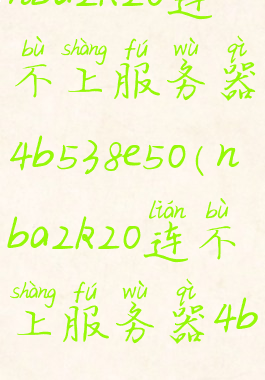 nba2k20连
bù shàng fú wù qì
不上服务器
4b538e50(n
lián bù
ba2k20连不
shàng fú wù qì
上服务器4b